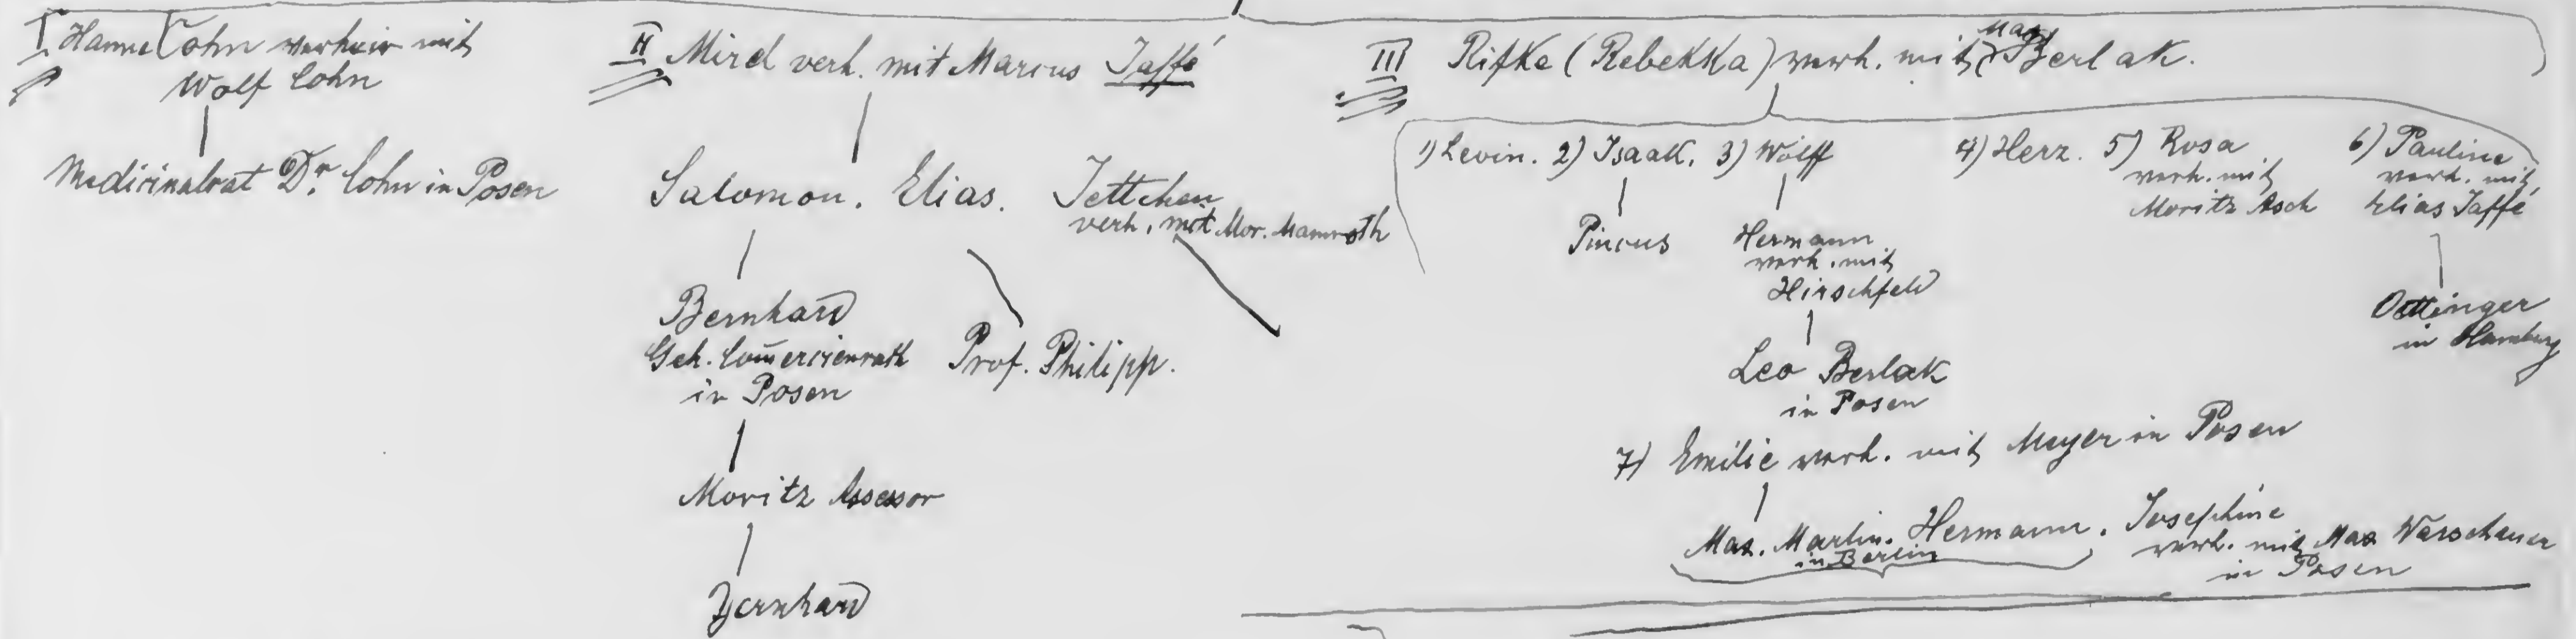 I Hanne Cohn verheir mit
Wolf Cohn
Medicinalrat Dr. Cohn in Posen
II Mirel verh. mit Marcus Jaffé
Salomon. Elias. Jettchen
verh. mit Mor. Mamroth
Bernhard
Geh. Com̄ercienrath
in Posen
Prof. Philipp.
Moritz Assessor
Bernhard
III Rifke (Rebekka) verh. mit Max Berlak.
1) Levin. 2) Isaak. 3) Wolff 4) Herz. 5) Rosa
verh. mit
Moritz Asch
6) Pauline
verh. mit
Elias Jaffé
Pincus
Hermann
verh. mit
Hirschfeld
Oettinger
in Hamburg
Leo Berlak
in Posen
7) Emilie verh. mit Meyer in Posen
Max. Martin. Hermann. Josephine
in Berlin
verh. mit Max Warschauer
in Posen